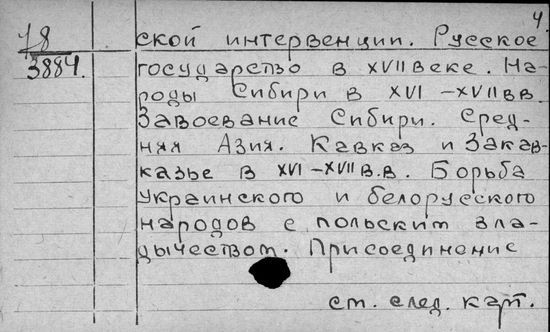 4.
18
3884.
ской интервенции. Русское
государство в XVII веке. На-
роды Сибири в XVI – XVII вв.
Завоевание Сибири. Сред-
няя Азия. Кавказ и Закав-
казье в XVI – XVII в.в. Борьба
украинского и белорусского
народов с польским вла-
дычеством. Присоединение
см. след. карт.